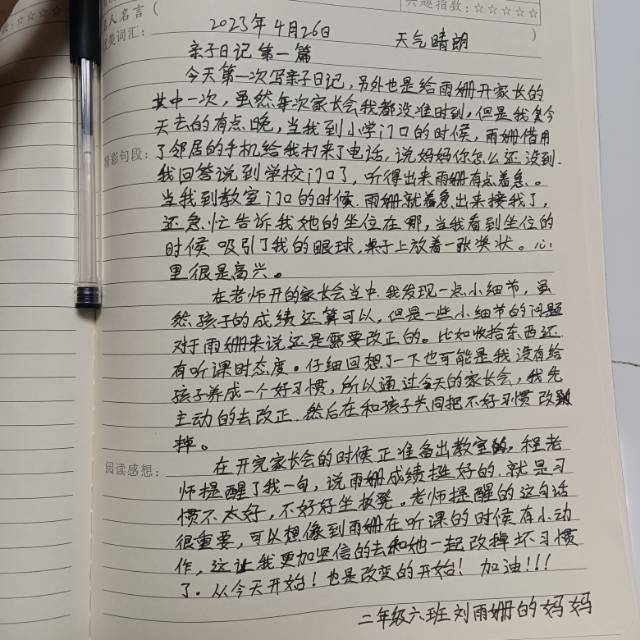 兴趣指数：☆☆☆☆☆
人名言（
）
2023年4月26日 天气晴朗
美词汇：
亲子日记第一篇
今天第一次写亲子日记，另外也是给雨姗开家长的
其中一次，虽然每次家长会我都没准时到，但是我今
天去的有点晚，当我到小学门口的时候，雨姗借用
精彩句段：
了邻居的手机给我打来了电话，说妈妈你怎么还没到.
我回答说到学校门口了，听得出来雨姗有点着急。
当我到教室门口的时候.雨姗就着急出来接我了，
还急忙告诉我她的坐位在哪，当我看到坐位的
时候 吸引了我的眼球，桌子上放着一张奖状。心
里很是高兴。
在老师开的家长会当中.我发现一点小细节，虽
然孩子的成绩还算可以，但是一些小细节的问题
对于雨姗来说还是需要改正的。比如收拾东西还
有听课时态度。仔细回想了一下也可能是我没有给
孩子养成一个好习惯，所以通过今天的家长会，我先
主动的去改正.然后在和孩子共同把不好习惯改
掉。
阅读感想：
在开完家长会的时候正准备出教室，程老
师提醒了我一句，说雨姗成绩挺好的.就是习
惯不太好，不好好坐板凳。老师提醒的这句话
很重要，可以想像到雨姗在听课的时候有小动
作，这让我更加坚信的去和她一起改掉坏习惯
了。从今天开始！也是改变的开始！加油！！！
二年级六班刘雨姗的妈妈